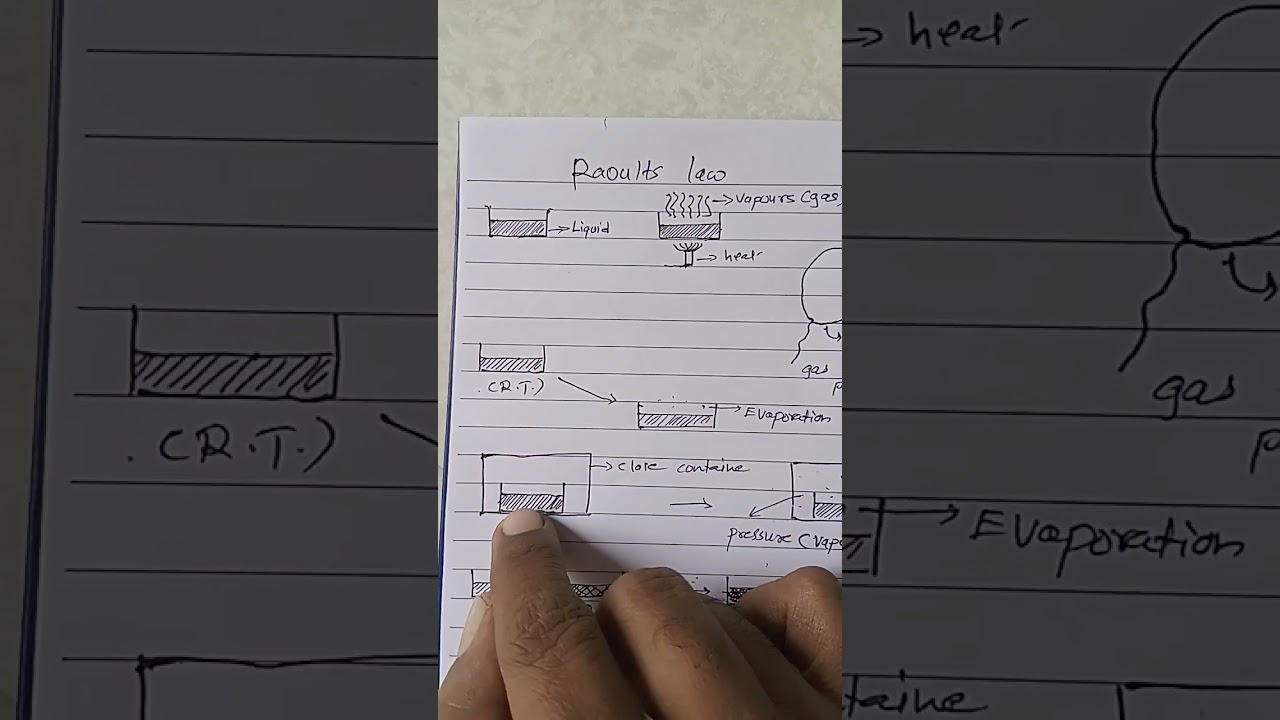 Raoults law
vapours (gas)
Liquid
heat
gas
(R.T.)
Evaporation
close containe
pressure (vapo
heat
(R.T.)
gas
P
Evaporation
ntaine